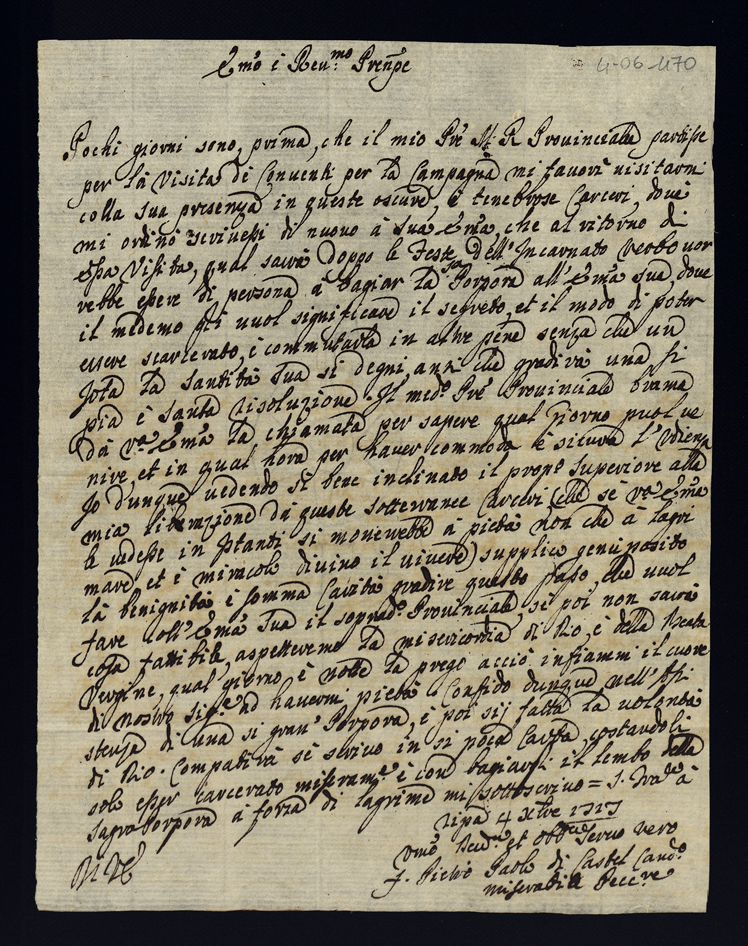 4-06-470
Emo e Reu:mo Prenpe
Pochi giorni sono, prima, che il mio Pre M: R Provinciale partisse
per la Visita di Conventi per la Campagna mi favori visitarmi
colla sua presenza in queste oscure, e tenebrose Carceri, dove
mi ordinò scrivessi di nuovo à sua Ema, che al ritorno di
essa Visita, qual sarà doppo le Feste dell'Incarnato Verbo vor
rebbe essere di persona à bagiar la sa Porpora all'Ema sua, dove
il medemo li vuol significare il segreto, et il modo di poter
essere scarcerato, è commutarla in altre pene senza che un
Jota la Santità sua si degni, anzi che gradirà una si
pia è santa risoluzione. Il med:o Pre Provinciale brama
da Va Ema la chiamata per sapere qual giorno puol ve
nire, et in qual hora per haver commoda è sicura l'Vdienza
Io dunque vedendo si bene inclinato il propo superiore alla
mia liberazione da queste sotterranee Carceri (che se va Ema
le vedesse in Istanti si moverebbe à pietà non che à lagri
mare et è miracolo divino il vivere) supplico genuposito
la benignità è somma Carità gradire questo passo, che vuol
fare coll'Ema sua il soprad:o Provinciale, se poi non sarà
cosa fattibile, aspetteremo la misericordia di Dio, è della Beata
Vergine, qual giorno, è notte la prego acciò infiammi il cuore
di nostro sige ad havermi pietà. Confido dunque nell'Assi
stenza di una si gran' Porpora, è poi sij fatta la volontà
di Dio. Compatirà se scrivo in si poca Carta, costandoli
solo esser carcerato miserame è con bagiarli il lembo della
sagra Porpora à forza di lagrime mi sottoscrivo = S. Franco à
ripa 4 Xbre 1717
Vmo Deu:o et obbmo Servo vero
f. Pietro Paolo di Castel Cand:o
miserabile Pecc:re